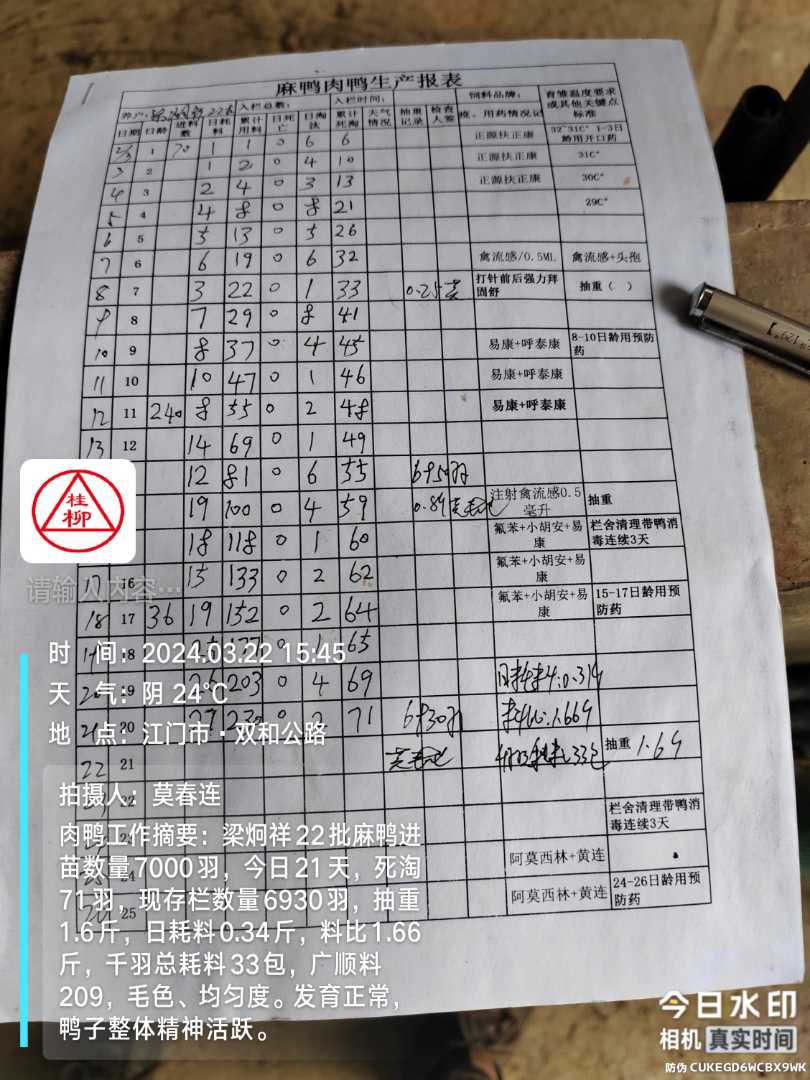 麻鸭肉鸭生产报表
养户: 22 入栏总数: 入栏时间: 饲料品牌: 育雏温度要求或其他关键点标准
日期 日龄 进料数 日耗料 累计用料 日死亡 日淘汰 累计死淘 天气情况 抽重记录 检查人签
2/3 1 70 1 1 0 6 6 正源扶正康 32~31C° 1-3日龄用开口药
3 2 1 2 0 4 10 正源扶正康 31C°
4 3 2 4 0 3 13 正源扶正康 30C°
5 4 4 8 0 8 21 29C°
6 5 5 13 0 5 26
7 6 6 19 0 6 32 禽流感/0.5ML 禽流感+头孢
8 7 3 22 0 1 33 0.25 打针前后强力拜固舒 抽重( )
9 8 7 29 0 8 41
10 9 8 37 0 4 45 易康+呼泰康 8-10日龄用预防药
11 10 10 47 0 1 46 易康+呼泰康
12 11 240 8 55 0 2 48 易康+呼泰康
13 12 14 69 0 1 49
12 81 0 6 55 6950羽
19 100 0 4 59 0.89 注射禽流感0.5毫升 抽重
18 118 0 1 60 氟苯+小胡安+易康 栏舍清理带鸭消毒连续3天
17 16 15 133 0 2 62 氟苯+小胡安+易康
18 17 36 19 152 0 2 64 氟苯+小胡安+易康 15-17日龄用预防药
19 18 25 177 0 1 65
19 26 203 0 4 69
21 20 27 230 0 2 71 6930羽
22 21 抽重 1.69
22 栏舍清理带鸭消毒连续3天
24 阿莫西林+黄连
25 阿莫西林+黄连 24-26日龄用预防药
桂柳
请输入内容…
时 间:2024.03.22 15:45
天 气:阴 24℃
地 点:江门市·双和公路
拍摄人:莫春连
肉鸭工作摘要:梁炯祥22批麻鸭进
苗数量7000羽,今日21天,死淘
71羽,现存栏数量6930羽,抽重
1.6斤,日耗料0.34斤,料比1.66
斤,千羽总耗料33包,广顺料
209,毛色、均匀度。发育正常,
鸭子整体精神活跃。
今日水印
相机 真实时间
防伪 CUKEGD6WCBX9WK